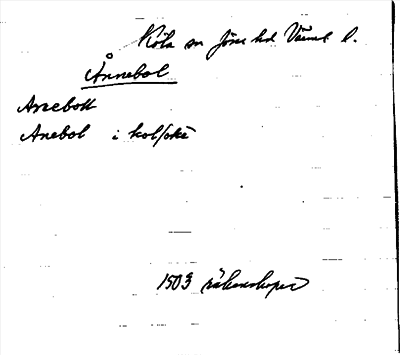 Köla sn Jösse hd Värml l.
Ånnebol
Arnebott
Anebol i kolsokn
1503 räkenskaper